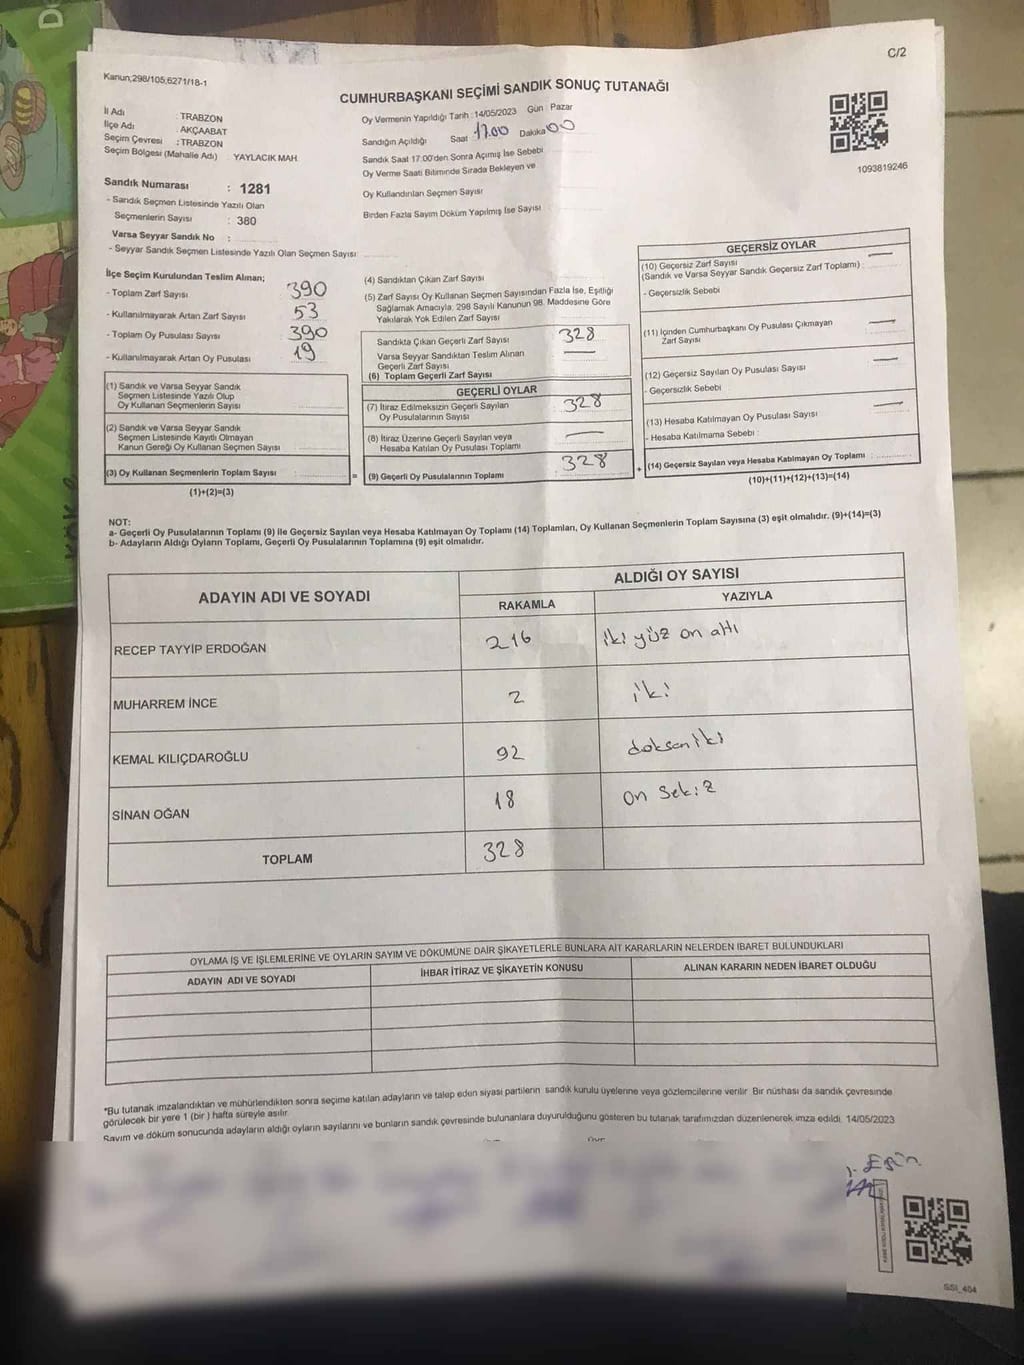 C/2
Kanun;298/105;6271/18-1
CUMHURBAŞKANI SEÇİMİ SANDIK SONUÇ TUTANAĞI
İl Adı : TRABZON
İlçe Adı : AKÇAABAT
Seçim Çevresi : TRABZON
Seçim Bölgesi (Mahalle Adı) : YAYLACIK MAH.
Sandık Numarası : 1281
- Sandık Seçmen Listesinde Yazılı Olan
Seçmenlerin Sayısı : 380
Varsa Seyyar Sandık No :
- Seyyar Sandık Seçmen Listesinde Yazılı Olan Seçmen Sayısı:
Oy Vermenin Yapıldığı Tarih : 14/05/2023 Gün : Pazar
Sandığın Açıldığı Saat 17.00 Dakika 00
Sandık Saat 17:00'den Sonra Açımış İse Sebebi
Oy Verme Saati Bitiminde Sırada Bekleyen ve
Oy Kullandırılan Seçmen Sayısı
Birden Fazla Sayım Döküm Yapılmış İse Sayısı
1093819246
İlçe Seçim Kurulundan Teslim Alınan;
- Toplam Zarf Sayısı 390
- Kullanılmayarak Artan Zarf Sayısı 53
- Toplam Oy Pusulası Sayısı 390
- Kullanılmayarak Artan Oy Pusulası 19
(1) Sandık ve Varsa Seyyar Sandık
Seçmen Listesinde Yazılı Olup
Oy Kullanan Seçmenlerin Sayısı
(2) Sandık ve Varsa Seyyar Sandık
Seçmen Listesinde Kayıtlı Olmayan
Kanun Gereği Oy Kullanan Seçmen Sayısı
(3) Oy Kullanan Seçmenlerin Toplam Sayısı
(1)+(2)=(3)
(4) Sandıktan Çıkan Zarf Sayısı
(5) Zarf Sayısı Oy Kullanan Seçmen Sayısından Fazla İse, Eşitliği
Sağlamak Amacıyla, 298 Sayılı Kanunun 98. Maddesine Göre
Yakılarak Yok Edilen Zarf Sayısı
Sandıkta Çıkan Geçerli Zarf Sayısı 328
Varsa Seyyar Sandıktan Teslim Alınan
Geçerli Zarf Sayısı —
(6) Toplam Geçerli Zarf Sayısı
GEÇERLİ OYLAR
(7) İtiraz Edilmeksizin Geçerli Sayılan
Oy Pusulalarının Sayısı 328
(8) İtiraz Üzerine Geçerli Sayılan veya
Hesaba Katılan Oy Pusulası Toplamı —
= (9) Geçerli Oy Pusulalarının Toplamı 328 +
GEÇERSİZ OYLAR
(10) Geçersiz Zarf Sayısı —
(Sandık ve Varsa Seyyar Sandık Geçersiz Zarf Toplamı) :
- Geçersizlik Sebebi
(11) İçinden Cumhurbaşkanı Oy Pusulası Çıkmayan
Zarf Sayısı —
(12) Geçersiz Sayılan Oy Pusulası Sayısı —
- Geçersizlik Sebebi
(13) Hesaba Katılmayan Oy Pusulası Sayısı —
- Hesaba Katılmama Sebebi :
(14) Geçersiz Sayılan veya Hesaba Katılmayan Oy Toplamı :
(10)+(11)+(12)+(13)=(14)
NOT:
a- Geçerli Oy Pusulalarının Toplamı (9) ile Geçersiz Sayılan veya Hesaba Katılmayan Oy Toplamı (14) Toplamları, Oy Kullanan Seçmenlerin Toplam Sayısına (3) eşit olmalıdır. (9)+(14)=(3)
b- Adayların Aldığı Oyların Toplamı, Geçerli Oy Pusulalarının Toplamına (9) eşit olmalıdır.
ADAYIN ADI VE SOYADI
ALDIĞI OY SAYISI
RAKAMLA YAZIYLA
RECEP TAYYİP ERDOĞAN 216 iki yüz on altı
MUHARREM İNCE 2 iki
KEMAL KILIÇDAROĞLU 92 doksan iki
SİNAN OĞAN 18 on sekiz
TOPLAM 328
OYLAMA İŞ VE İŞLEMLERİNE VE OYLARIN SAYIM VE DÖKÜMÜNE DAİR ŞİKAYETLERLE BUNLARA AİT KARARLARIN NELERDEN İBARET BULUNDUKLARI
ADAYIN ADI VE SOYADI İHBAR İTİRAZ VE ŞİKAYETİN KONUSU ALINAN KARARIN NEDEN İBARET OLDUĞU
*Bu tutanak imzalandıktan ve mühürlendikten sonra seçime katılan adayların ve talep eden siyasi partilerin sandık kurulu üyelerine veya gözlemcilerine verilir. Bir nüshası da sandık çevresinde
görülecek bir yere 1 (bir ) hafta süreyle asılır.
Sayım ve döküm sonucunda adayların aldığı oyların sayılarını ve bunların sandık çevresinde bulunanlara duyurulduğunu gösteren bu tutanak tarafımızdan düzenlenerek imza edildi. 14/05/2023
SSI_404